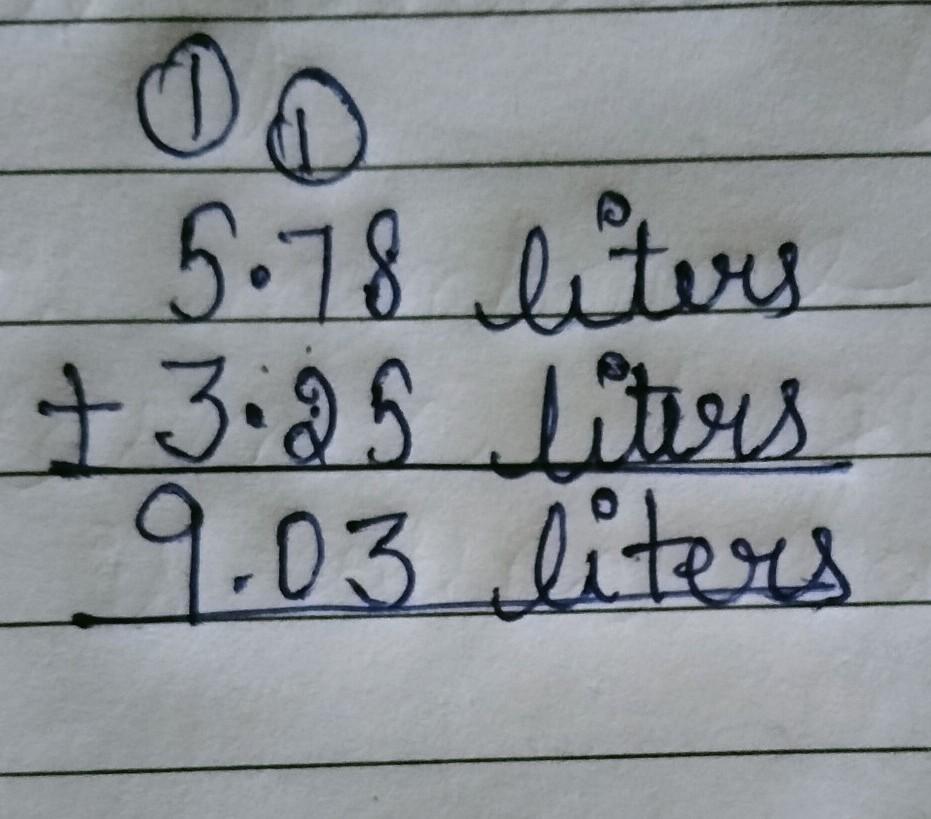 ① ①
5.78 liters
+ 3.25 liters
9.03 liters